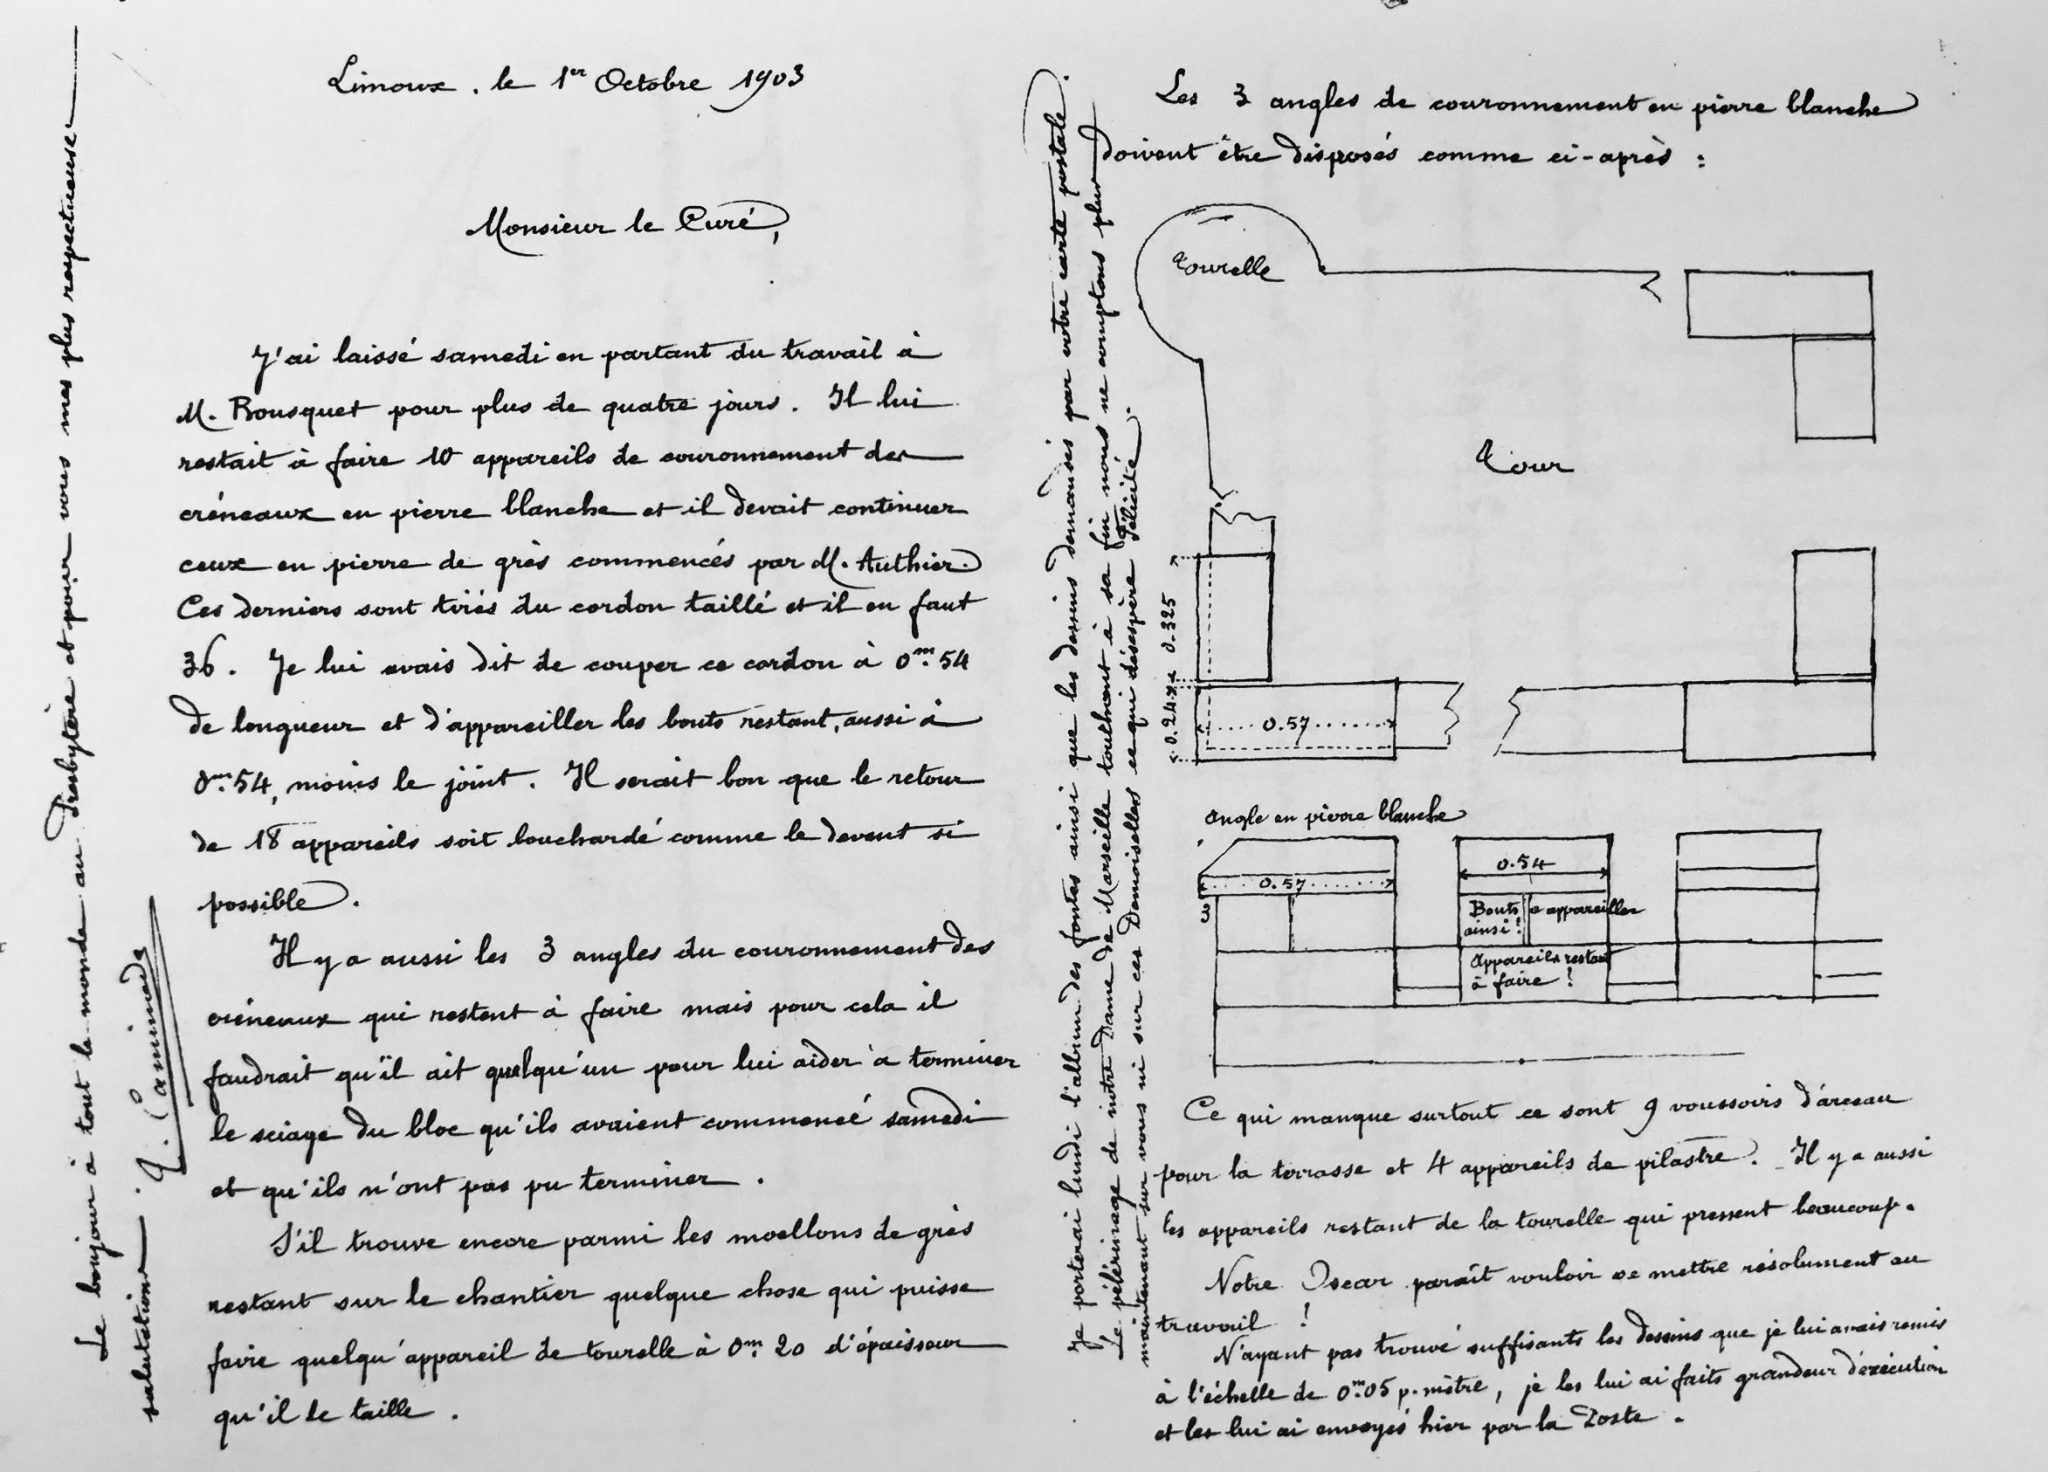 Limoux, le 1er Octobre 1903
Monsieur le Curé,
J'ai laissé samedi en partant du travail à
M. Bousquet pour plus de quatre jours. Il lui
restait à faire 10 appareils de couronnement des
créneaux en pierre blanche et il devait continuer
ceux en pierre de grès commencés par M. Authier.
Ces derniers sont tirés du cordon taillé et il en faut
36. Je lui avais dit de couper ce cordon à 0m.54
de longueur et d'appareiller les bouts restant, aussi à
0m.54, moins le joint. Il serait bon que le retour
de 18 appareils soit bouchardé comme le devent si
possible.
Il y a aussi les 3 angles du couronnement des
créneaux qui restent à faire mais pour cela il
faudrait qu'il ait quelqu'un pour lui aider à terminer
le sciage du bloc qu'ils avaient commencé samedi
et qu'ils n'ont pas pu terminer.
S'il trouve encore parmi les moellons de grès
restant sur le chantier quelque chose qui puisse
faire quelqu'appareil de tourelle à 0m.20 d'épaisseur
qu'il le taille.
Les 3 angles de couronnement en pierre blanche
doivent être disposés comme ci-après :
Tourelle
Tour
0.325
0.24
0.57
Angle en pierre blanche
0.57
0.54
3
Bouts à appareiller
ainsi !
Appareils restant
à faire !
Ce qui manque surtout ce sont 9 voussoirs d'arceau
pour la terrasse et 4 appareils de pilastre. Il y a aussi
les appareils restant de la tourelle qui pressent beaucoup.
Notre Oscar paraît vouloir se mettre résolument au
travail !
N'ayant pas trouvé suffisants les dessins que je lui avais remis
à l'échelle de 0m05 p. mètre, je les lui ai faits grandeur d'exécution
et les lui ai envoyés hier par la Poste.
Je porterai lundi l'album des fontes ainsi que les dessins demandés par votre carte postale.
Le pélérinage de notre Dame de Marseille touchant à sa fin nous ne comptons plus
maintenant sur vous ni sur ces Demoiselles ce qui désespère Félicité.
Le bonjour à tout le monde au Presbytère et pour vous mes plus respectueuses
salutations.
T. Caminade